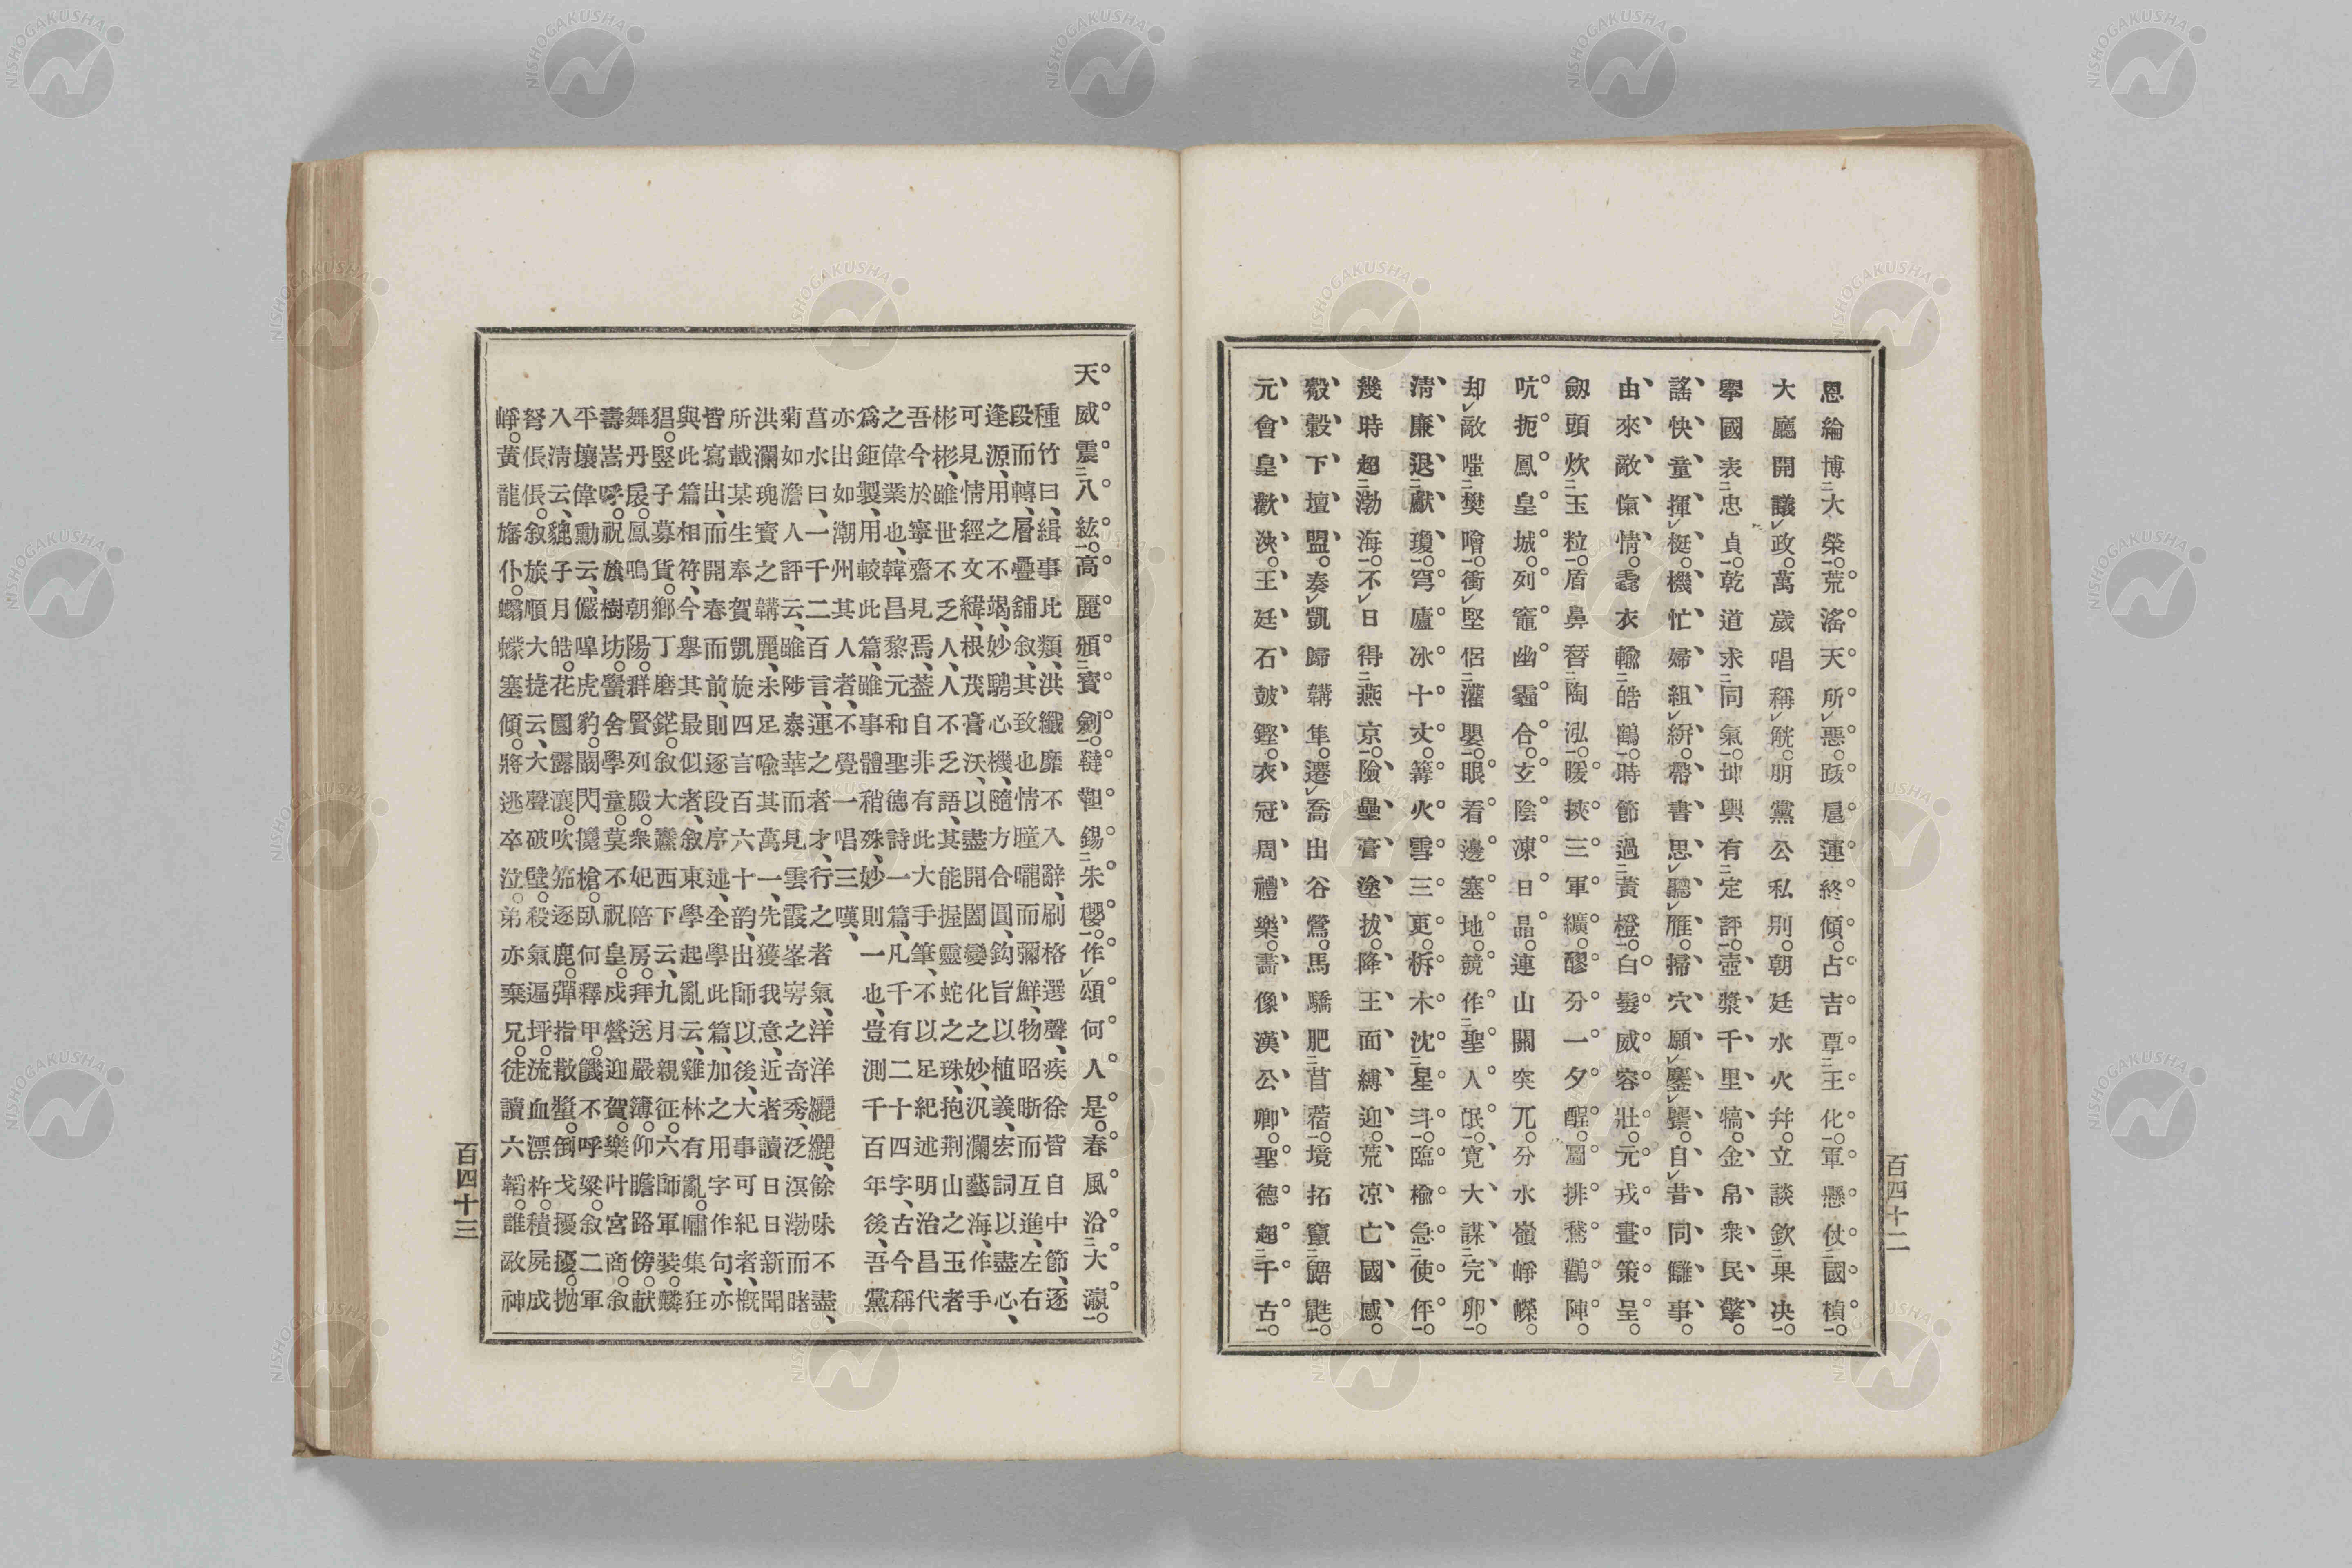 恩綸博大榮。荒滛天所惡。䟦扈運終傾。占吉覃王化。軍懸仗國楨。
大廳開議政。萬歲唱稱觥。朋黨公私別。朝廷水火幷。立談欽果决。
擧國表忠貞。乾道求同氣。坤輿有定評。壺漿千里犒。金帛衆民擎。
謠快童揮梃。機忙婦組絣。帶書思聽雁。掃穴願鏖鬤。自昔同讎事。
由來敵愾情。毳衣輸皓鶴。時節過黃橙。白髮威容壯。元戎畫策呈。
劔頭炊玉粒。盾鼻替陶泓。暖挾三軍纊。醪分一夕酲。鬧排鵞鸛陣。
吭扼鳳皇城。列竈幽霾合。玄陰凍日晶。連山關突兀。分水嶺崢嶸。
却敵嗤樊噲。衝堅侶灌嬰。眼看邊塞地。競作聖人氓。寬大謀完卵。
淸廉退獻瓊。穹廬冰十丈。篝火雪三更。柝木沈星斗。臨楡急使伻。
幾時超渤海。不日得燕京。險壘膏塗拔。降王面縛迎。荒凉亡國感。
觳觫下壇盟。奏凱歸韝隼。遷喬出谷鶯。馬驕肥苜蓿。境拓竄鼯鼪。
元會皇歡浹。王廷石鼓鏗。衣冠周禮樂。畵像漢公卿。聖德超千古。
百四十二
天威震八紘。高麗頒寳劍。韃靼錫朱櫻。作頌何人是。春風洽大瀛。
種竹曰、緝事比類、洪纖靡不入辭、刷格選聲、疾徐皆自中節、逐
段而轉、層疊舖敘、其致也情曈曨而彌鮮、物昭晣而互進、左右
逢源、用之不竭、妙騁心機、隨方合圓、鈎旨以植義、宏詞以盡心、
可見情經文緯、根茂膏沃、以盡開闔變化之妙、汎瀾藝海、作手
彬彬、雖世不乏人、人不乏語、其能握靈蛇之珠、抱荆山之玉者
吾今於寧齋見焉、葢自非有此大手筆、不以足紀述明治昌代
之偉業也、韓昌黎元和聖德詩一篇、凡千有二十四字、古今稱
爲鉅製、用較此篇、雖事體稍殊、妙則一也、豈測千百年後、吾黨
亦出如潮州其人者、不覺一唱三嘆、
菖水曰、一千二百言、運之者才、行之者氣、洋洋纚纚、餘味不盡、
菊如澹人評云、雖陟泰華而見雲霞峯嶺之奇秀、泛溟渤而睹
洪瀾瑰寳之韝麗、未足喩其萬一、先獲我意、近者讀日日新聞
所載某生奉賀凱旋四言百六十韵、出師以後、大事可紀者、槪
皆寫出、而開春而前、則逐段序述、全學此篇、加之用字作句、亦
與此篇相符、今擧其最似者、敘東學起亂云、雞林有亂。嘯集狂
猖。竪子募貨。鄕丁磨鋩。敘大蠹西下云、九月親征。六師軍裝。麟
舞丹扆。鳳鳴朝陽。群賢列殿。衆妃陪房。拜送嚴簿。仰瞻路傍。獻
壽嵩呼。祝旗樹坊。黌舍學童。莫不祝皇。戍營迎賀。樂叶宮商。敘
平壤偉勳云、儼嘷虎豹。關閃攙槍。臥何釋甲。饑不呼粱。敘二軍
入淸云、貔子月皓。花園露瀼。吹笳逐鹿。彈指散蟹。倒戈擾擾。抛
弩倀倀。敘旅順大捷云、大聲破壁。殺氣逼坪。流血漂杵。積屍成
崢。黃龍旛仆。蠮蠓塞傾。將逃卒泣。弟亦棄兄。徒讀六韜。誰敵神
百四十三